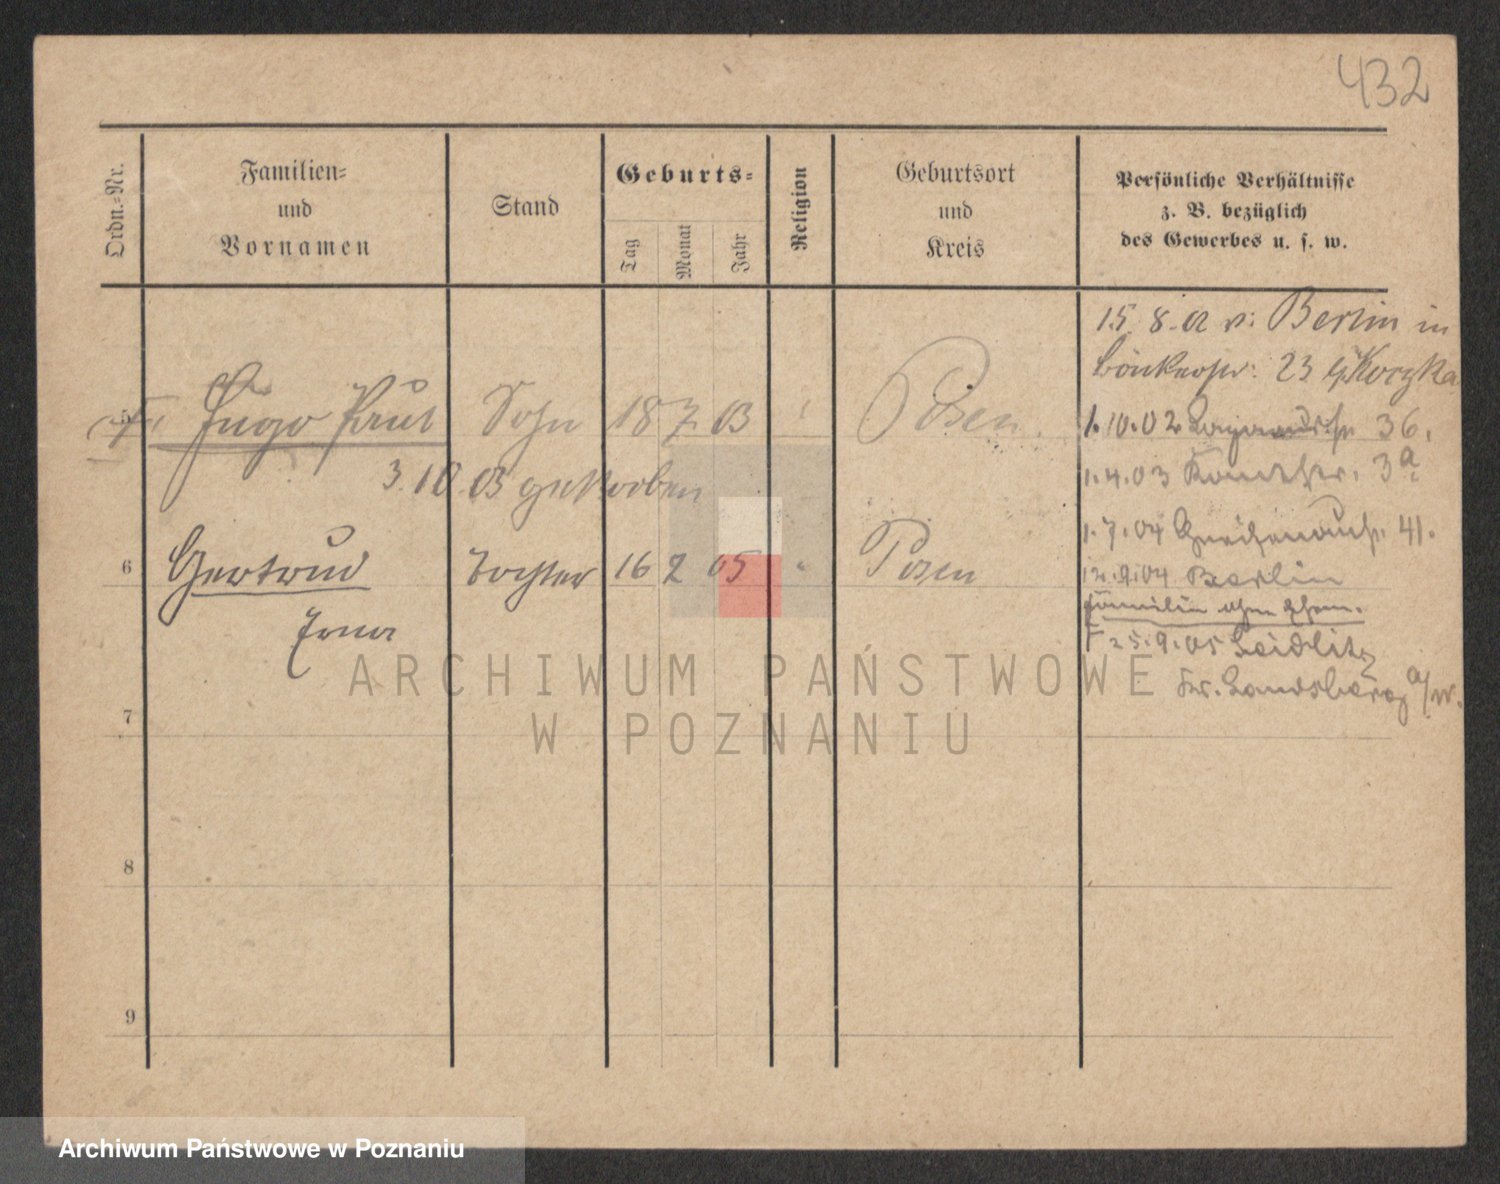 432
Ordn.-Nr.
Familien-
und
Vornamen
Stand
Geburts-
Tag
Monat
Jahr
Religion
Geburtsort
und
Kreis
Persönliche Verhältnisse
z. B. bezüglich
des Gewerbes u. s. w.
15. 8. 02 v: Berlin in
23 b/Koczka
5 Hugo Paul Sohn 18 7 03 Posen
1.10.02 36.
3.10.03 gestorben
1.4.03 3a
1.7.04 Gneisenaustr. 41.
6 Gertrud Tochter 16 2 05 " Posen
12.9.04 Berlin
Familie ohne Ehem.
Erna
25.9.05 Seidlitz
Kr. Landsberg a/W.
7
8
9
ARCHIWUM PAŃSTWOWE
W POZNANIU
Archiwum Państwowe w Poznaniu